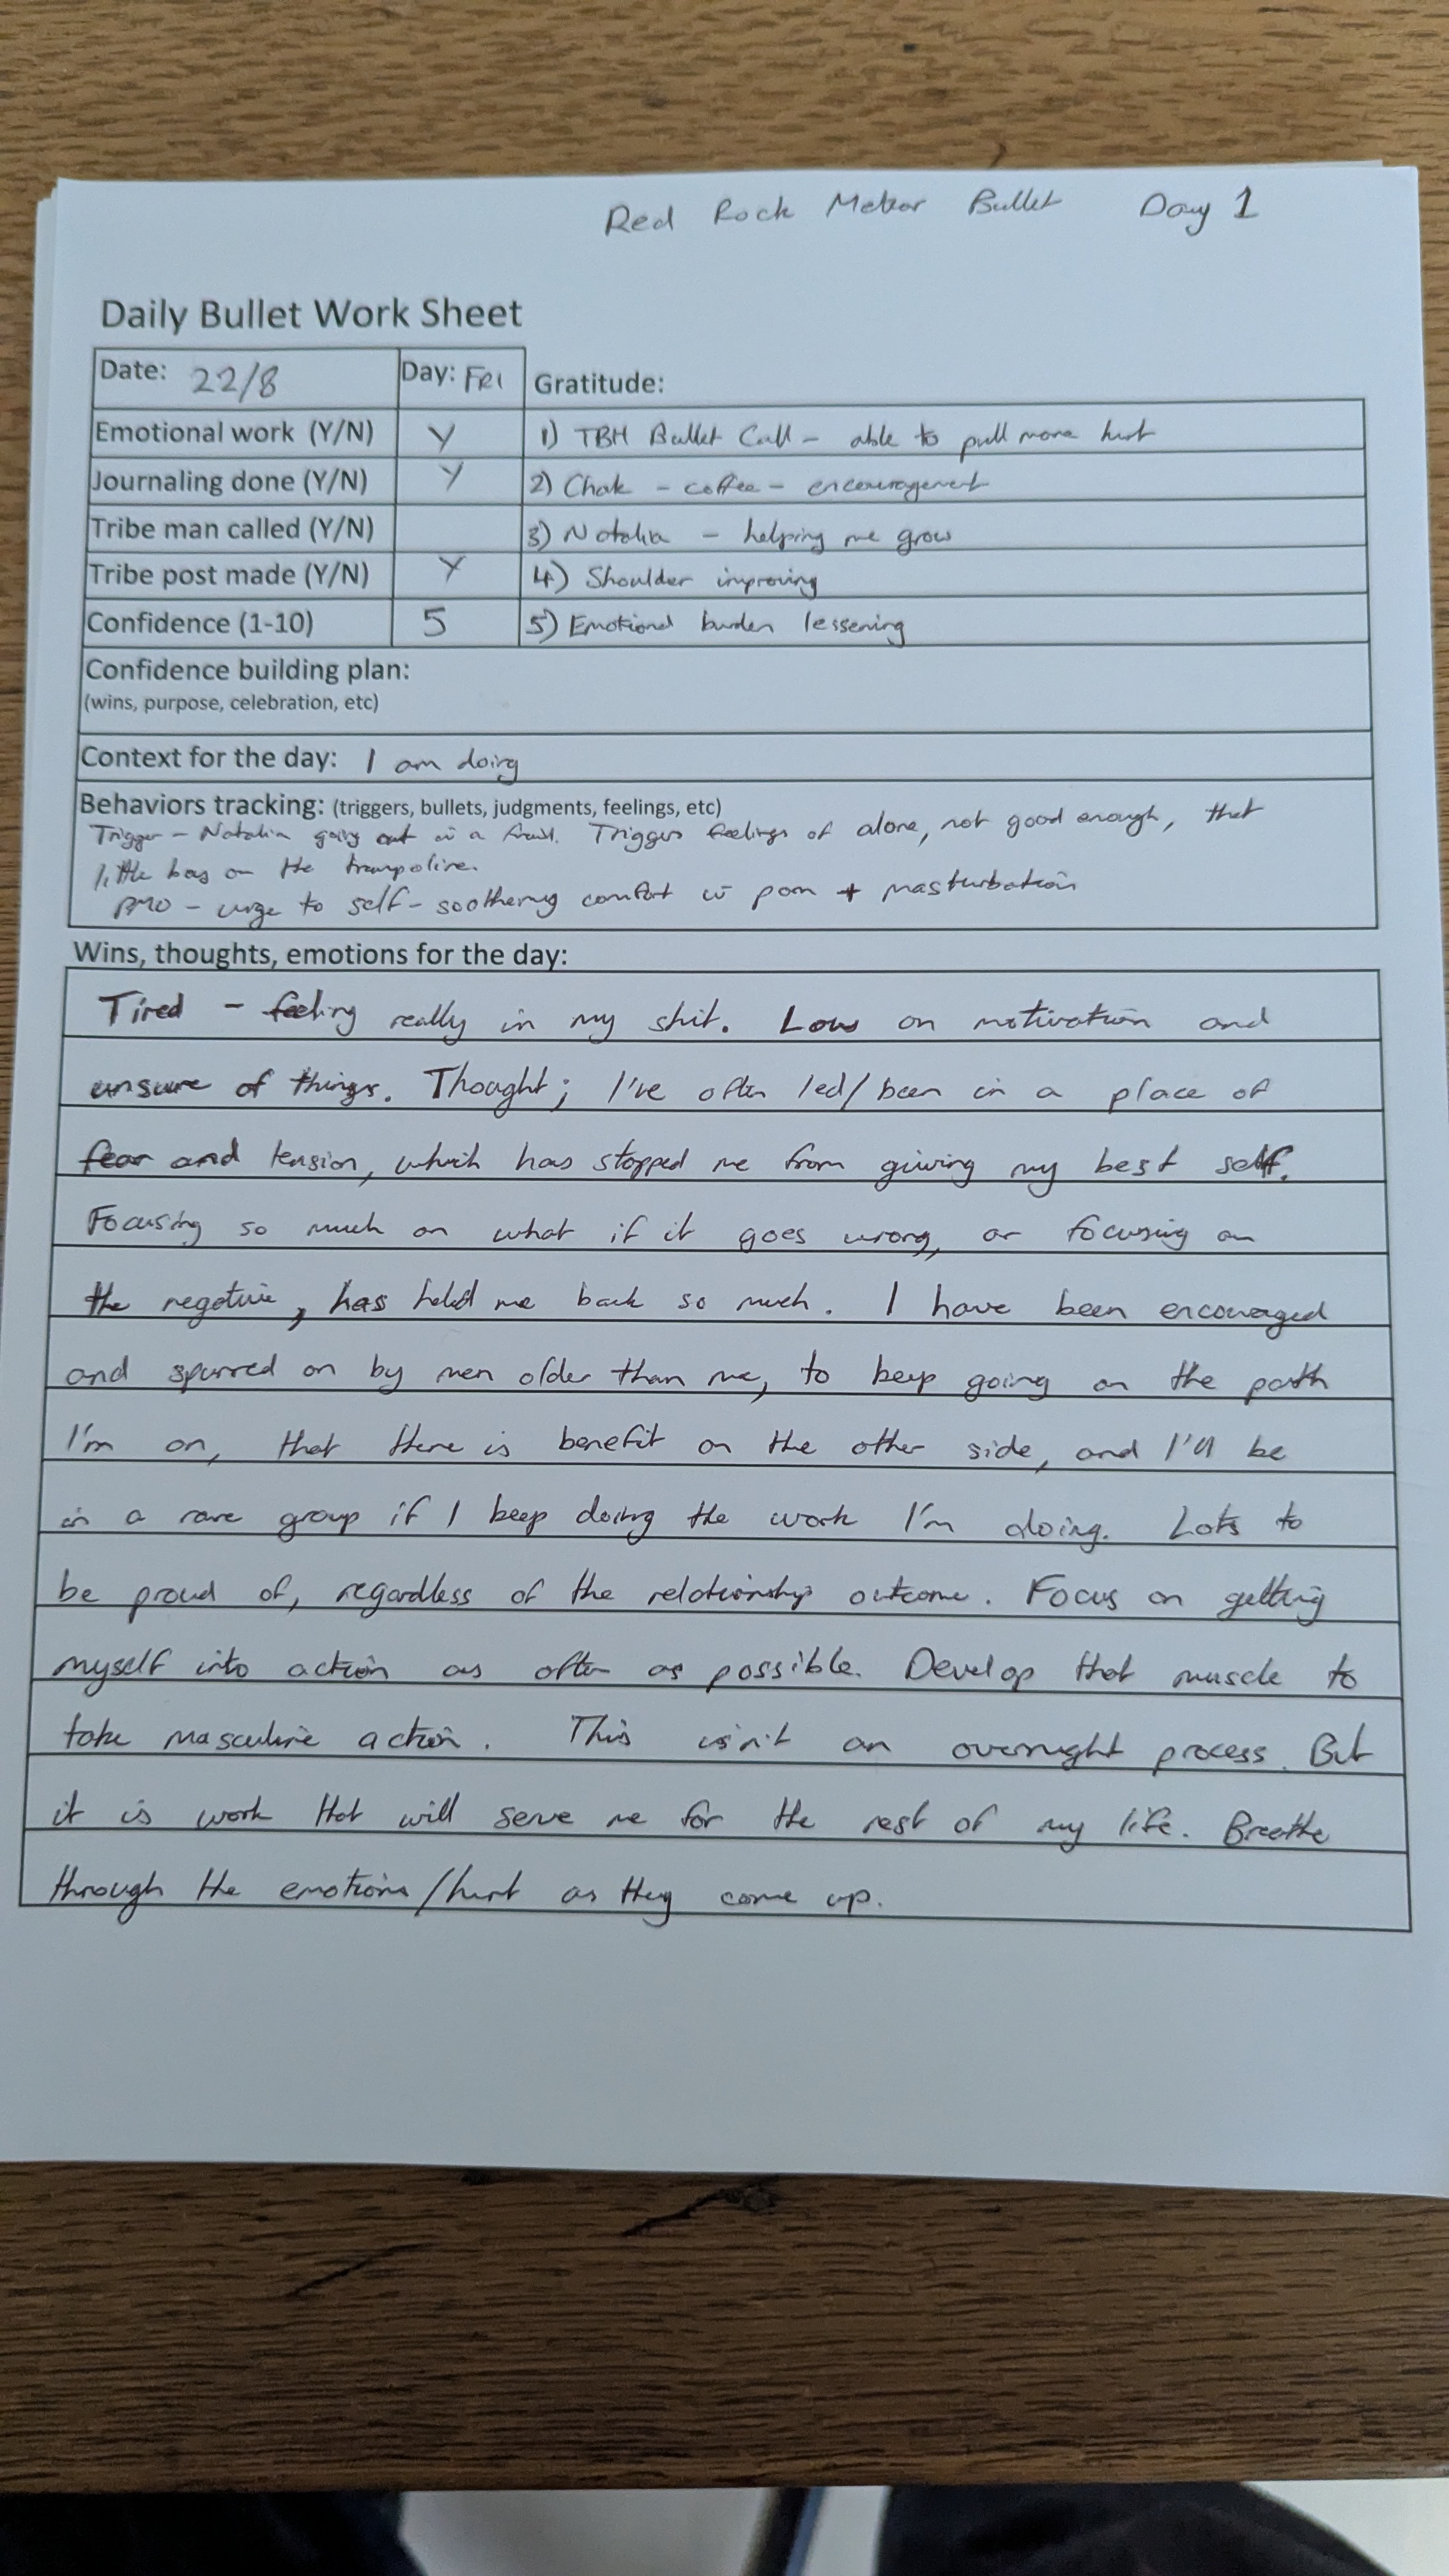 Red Rock Meteor Bullet Day 1
Daily Bullet Work Sheet
Date: 22/8 Day: FRI Gratitude:
Emotional work (Y/N) Y 1) TBM Bullet Call - able to pull more hurt
Journaling done (Y/N) Y 2) Chak - coffee - encouragement
Tribe man called (Y/N) 3) Natalia - helping me grow
Tribe post made (Y/N) Y 4) Shoulder improving
Confidence (1-10) 5 5) Emotional burden lessening
Confidence building plan:
(wins, purpose, celebration, etc)
Context for the day: I am doing
Behaviors tracking: (triggers, bullets, judgments, feelings, etc)
Trigger - Natalia going out w a friend. Triggers feelings of alone, not good enough, that
little boy on the trampoline.
PMO - urge to self-soothering comfort w porn + masturbation
Wins, thoughts, emotions for the day:
Tired - feeling really in my shit. Low on motivation and
unsure of things. Thought; I've often led/been in a place of
fear and tension, which has stopped me from giving my best self.
Focusing so much on what if it goes wrong, or focusing on
the negative, has held me back so much. I have been encouraged
and spurred on by men older than me, to keep going on the path
I'm on, that there is benefit on the other side, and I'll be
in a rare group if I keep doing the work I'm doing. Lots to
be proud of, regardless of the relationship outcome. Focus on getting
myself into action as often as possible. Develop that muscle to
take masculine action. This isn't an overnight process. But
it is work that will serve me for the rest of my life. Breathe
through the emotions/hurt as they come up.